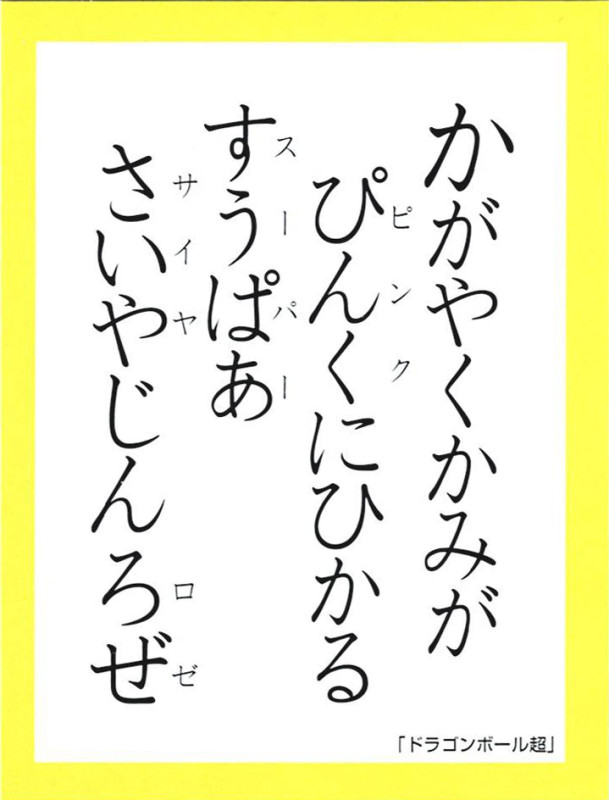 かがやくかみが
ぴんくにひかる
ピンク
すうぱあ
スーパー
さいやじんろぜ
サイヤ
ロゼ
「ドラゴンボール超」